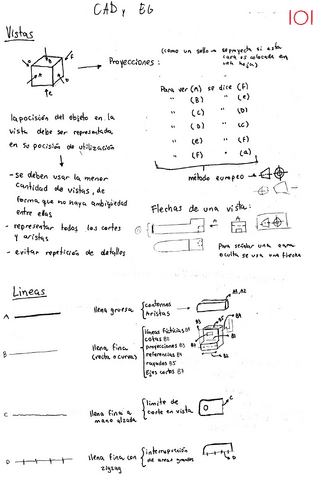 CAD y EG
101
Vistas
Proyecciones:
(como un sello → se proyecta si esta
cara es colocada en
una hoja)
Para ver (A) se dice (F)
" (B) " (E)
" (C) " (D)
" (D) " (C)
" (E) " (F)
" (F) " (A)
método europeo
la pocisión del objeto en la
vista debe ser representada
en su pocisión de utilización
- se deben usar la menor
cantidad de vistas, de
forma que no haya ambigüedad
entre ellas
- representar todos los cortes
y aristas
- evitar repetición de detalles
Flechas de una vista:
Para señalar una cara
oculta se usa una flecha
Lineas
A
llena gruesa
contornos
Aristas
A1, A2
B
llena fina
(recta o curva)
lineas ficticias B1
cotas B2
proyecciones B3
referencias B4
rayados B5
Ejes cortos B7
C
llena fina a
mano alzada
limite de
corte en vista
D
llena fina con
zigzag
interrupción
de areas grandes